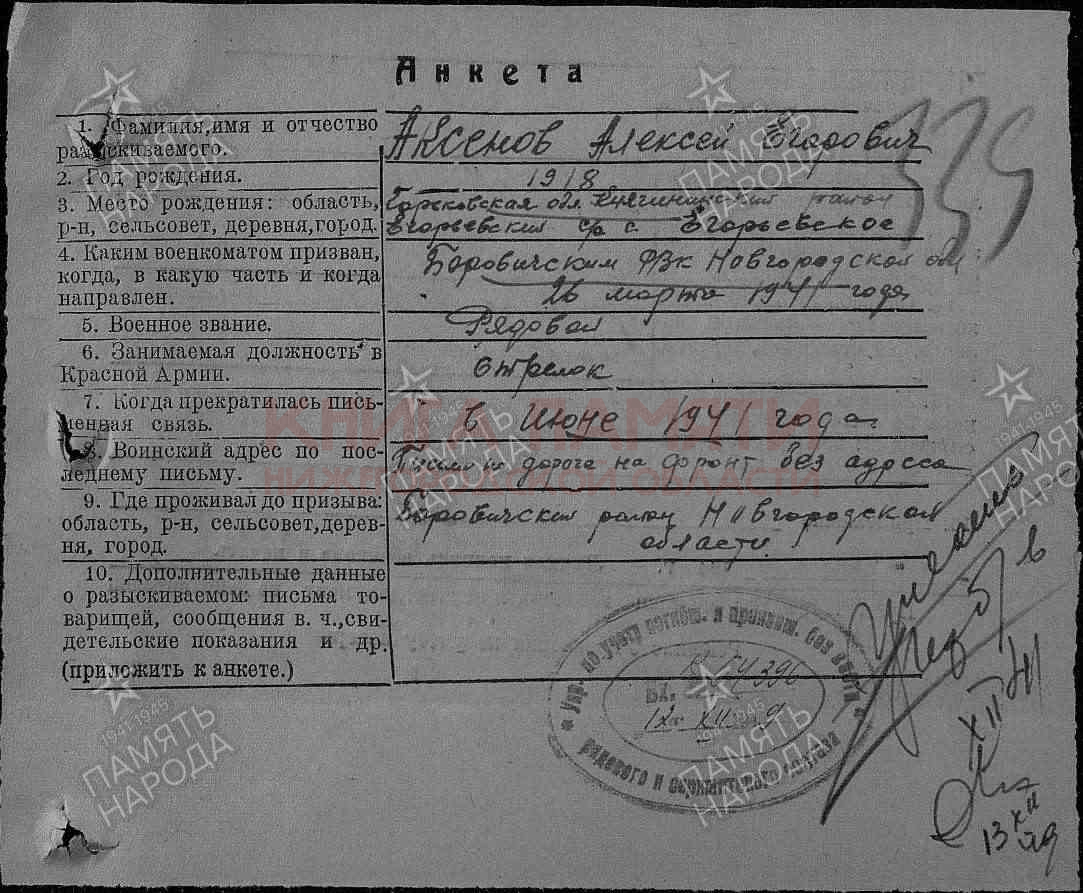 Анкета
1. Фамилия, имя и отчество разыскиваемого.
Аксенов Алексей Егорович
2. Год рождения.
1918
3. Место рождения: область, р-н, сельсовет, деревня, город.
Горьковская обл. Княгининский район
Егорьевский с/с с. Егорьевское
4. Каким военкоматом призван, когда, в какую часть и когда направлен.
Боровичским РВК Новгородской обл
26 марта 1941 года
5. Военное звание.
Рядовой
6. Занимаемая должность в Красной Армии.
стрелок
7. Когда прекратилась письменная связь.
в Июне 1941 года
8. Воинский адрес по последнему письму.
Письмо по дороге на фронт без адреса
9. Где проживал до призыва: область, р-н, сельсовет, деревня, город.
Боровичский район Новгородской
области
10. Дополнительные данные о разыскиваемом: письма товарищей, сообщения в. ч., свидетельские показания и др. (приложить к анкете.)
Упр. по учету погибш. и пропавш. без вести
рядового и сержантского состава
Вх.
13 XII 49
КНИГА ПАМЯТИ
НИЖЕГОРОДСКОЙ ОБЛАСТИ
1941-1945
ПАМЯТЬ
НАРОДА